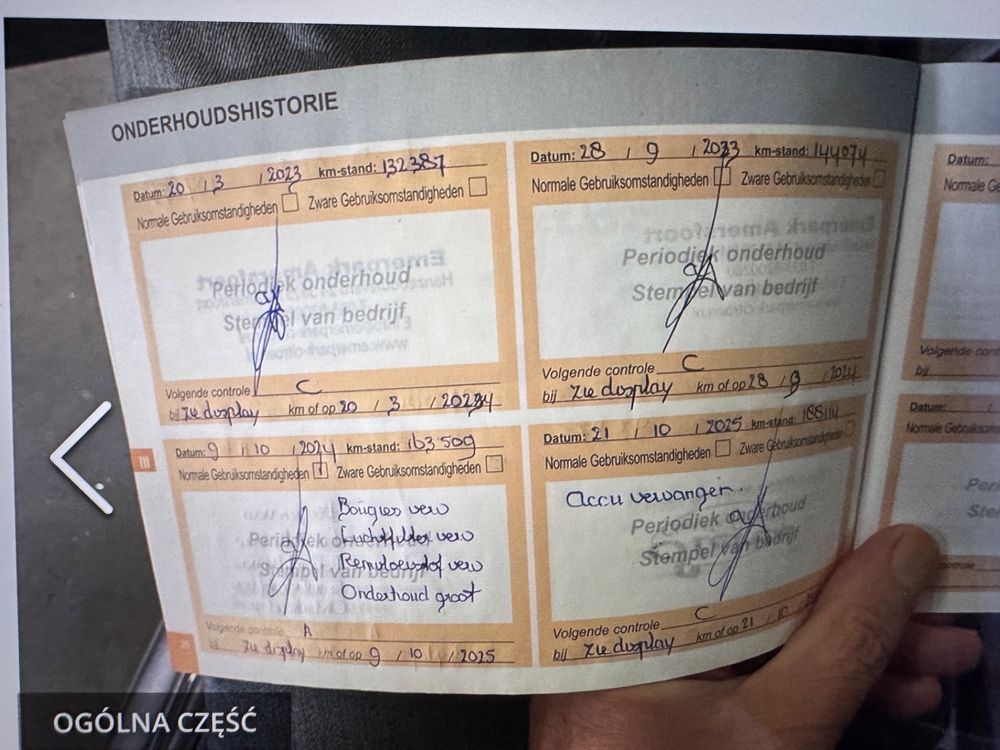 ONDERHOUDSHISTORIE
Datum: 20 / 3 / 2023 km-stand: 132387
Normale Gebruiksomstandigheden Zware Gebruiksomstandigheden
Periodiek onderhoud
Stempel van bedrijf
Volgende controle C
bij Zie display km of op 20 / 3 / 2024
Datum: 28 / 9 / 2023 km-stand: 144074
Normale Gebruiksomstandigheden Zware Gebruiksomstandigheden
Periodiek onderhoud
Stempel van bedrijf
Volgende controle C
bij Zie display km of op 28 / 9 / 2024
Datum: 9 / 10 / 2024 km-stand: 163509
Normale Gebruiksomstandigheden Zware Gebruiksomstandigheden
Bougies verv
Luchtfilter verv
Periodiek onderhoud
Remvloeistof verv
Stempel van bedrijf
Onderhoud groot
Volgende controle A
bij Zie display km of op 9 / 10 / 2025
Datum: 21 / 10 / 2025 km-stand:
Normale Gebruiksomstandigheden Zware Gebruiksomstandigheden
Accu vervangen.
Periodiek onderhoud
Stempel van bedrijf
Volgende controle C
bij Zie display km of op 21 / 10
Datum:
Normale Ge
Volgende
bij
Datum:
Normale
III
OGÓLNA CZĘŚĆ